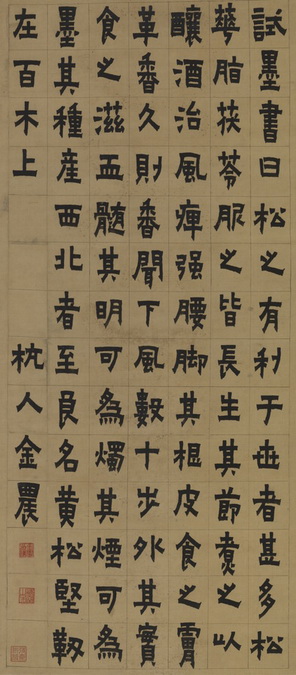 試墨書曰松之有利于世者甚多松
華脂茯苓服之皆長生其節煮之以
釀酒治風痺强腰脚其根皮食之膚
革香久則香聞下風數十步外其實
食之滋血髓其明可為燭其煙可為
墨其種産西北者至良名黄松堅韌
在百木上 杭人金農